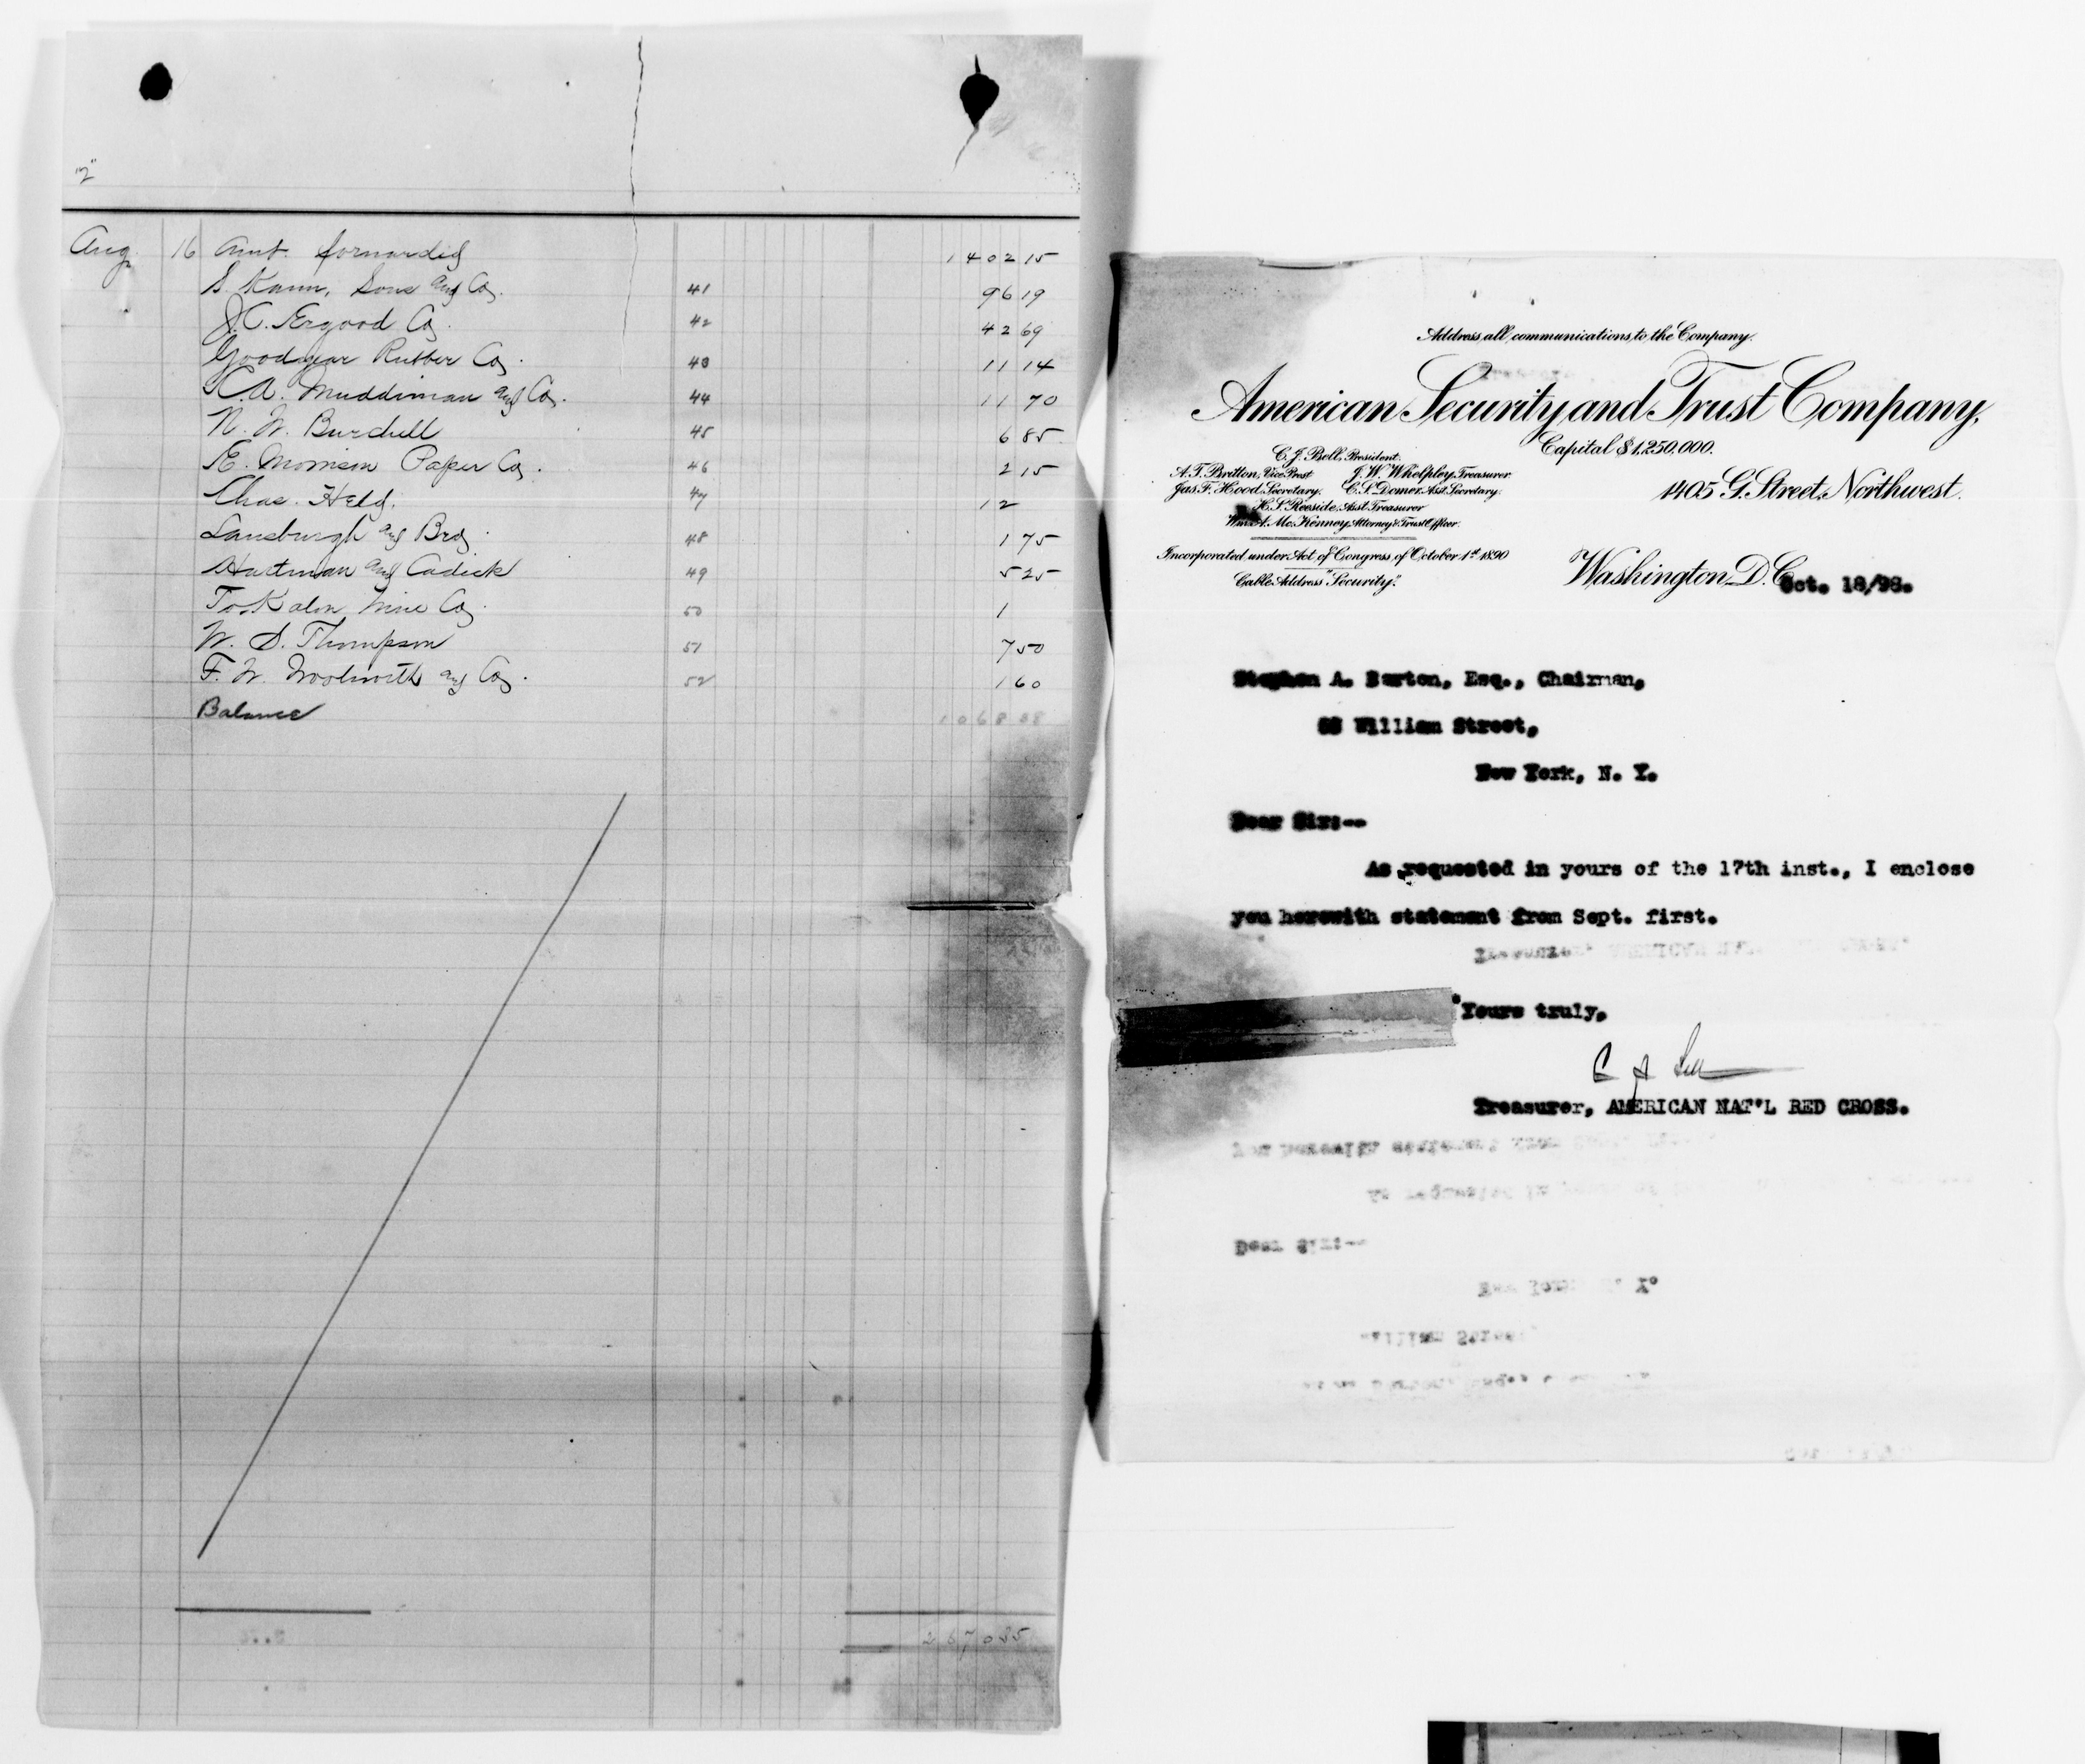 "2"
Aug. 16 Amt. forwarded 1402 15
S. Kann, Sons and Co. 41 96 19
J.C. Ergood Co. 42 42 69
Goodyear Rubber Co. 43 11 14
C.A. Muddiman and Co. 44 11 70
N. W. Burchell 45 6 85
E. Morrison Paper Co. 46 2 15
Chas. Held. 47 12
Lansburgh and Bro. 48 1 75
Hartman and Cadick 49 5 25
To Kalon Wine Co. 50 1
W. S. Thompson 51 7 50
F. W. Woolworth and Co. 52 1 60
Balance 1068 88
2670 85
Address all communications to the Company.
American Security and Trust Company,
Capital $1,250,000.
C. J. Bell, President.
A. T. Britton, Vice Prest J. W. Whelpley, Treasurer
Jas. F. Hood, Secretary. C. S. Domer, Asst. Secretary.
H. S. Reeside, Asst. Treasurer
Wm. A. Mc. Kenney, Attorney & Trust Officer.
1405 G. Street, Northwest.
Incorporated under Act of Congress of October 1st 1890
Cable Address "Security."
Washington, D.C. Oct. 18/98.
Stephen A. Barton, Esq., Chairman,
William Street,
New York, N. Y.
Dear Sir:--
As requested in yours of the 17th inst., I enclose
you herewith statement from Sept. first.
Yours truly,
C J Bell
Treasurer, AMERICAN NAT'L RED CROSS.